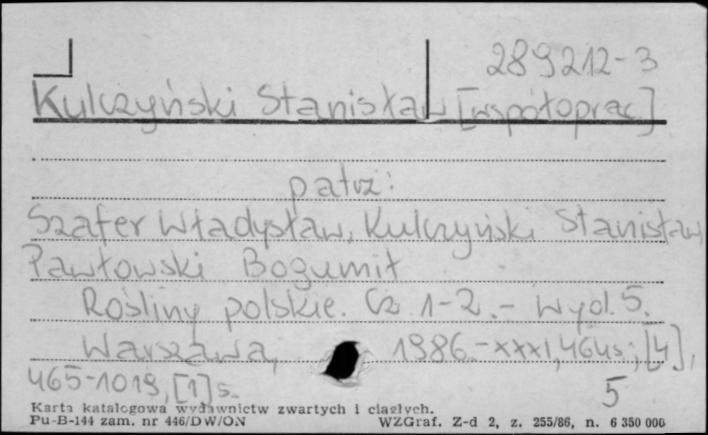 289212-3
Kulczyński Stanisław [współoprac]
patrz:
Szafer Władysław, Kulczyński Stanisław
Pawłowski Bogumił
Rośliny polskie. Cz 1-2. - Wyd. 5.
Warszawa, 1986. - XXXI, 464 s ; [4],
465-1019, [1] s. 5
Karta katalogowa wydawnictw zwartych i ciągłych.
Pu-B-144 zam. nr 446/DW/ON WZGraf. Z-d 2, z. 255/86, n. 6 350 000